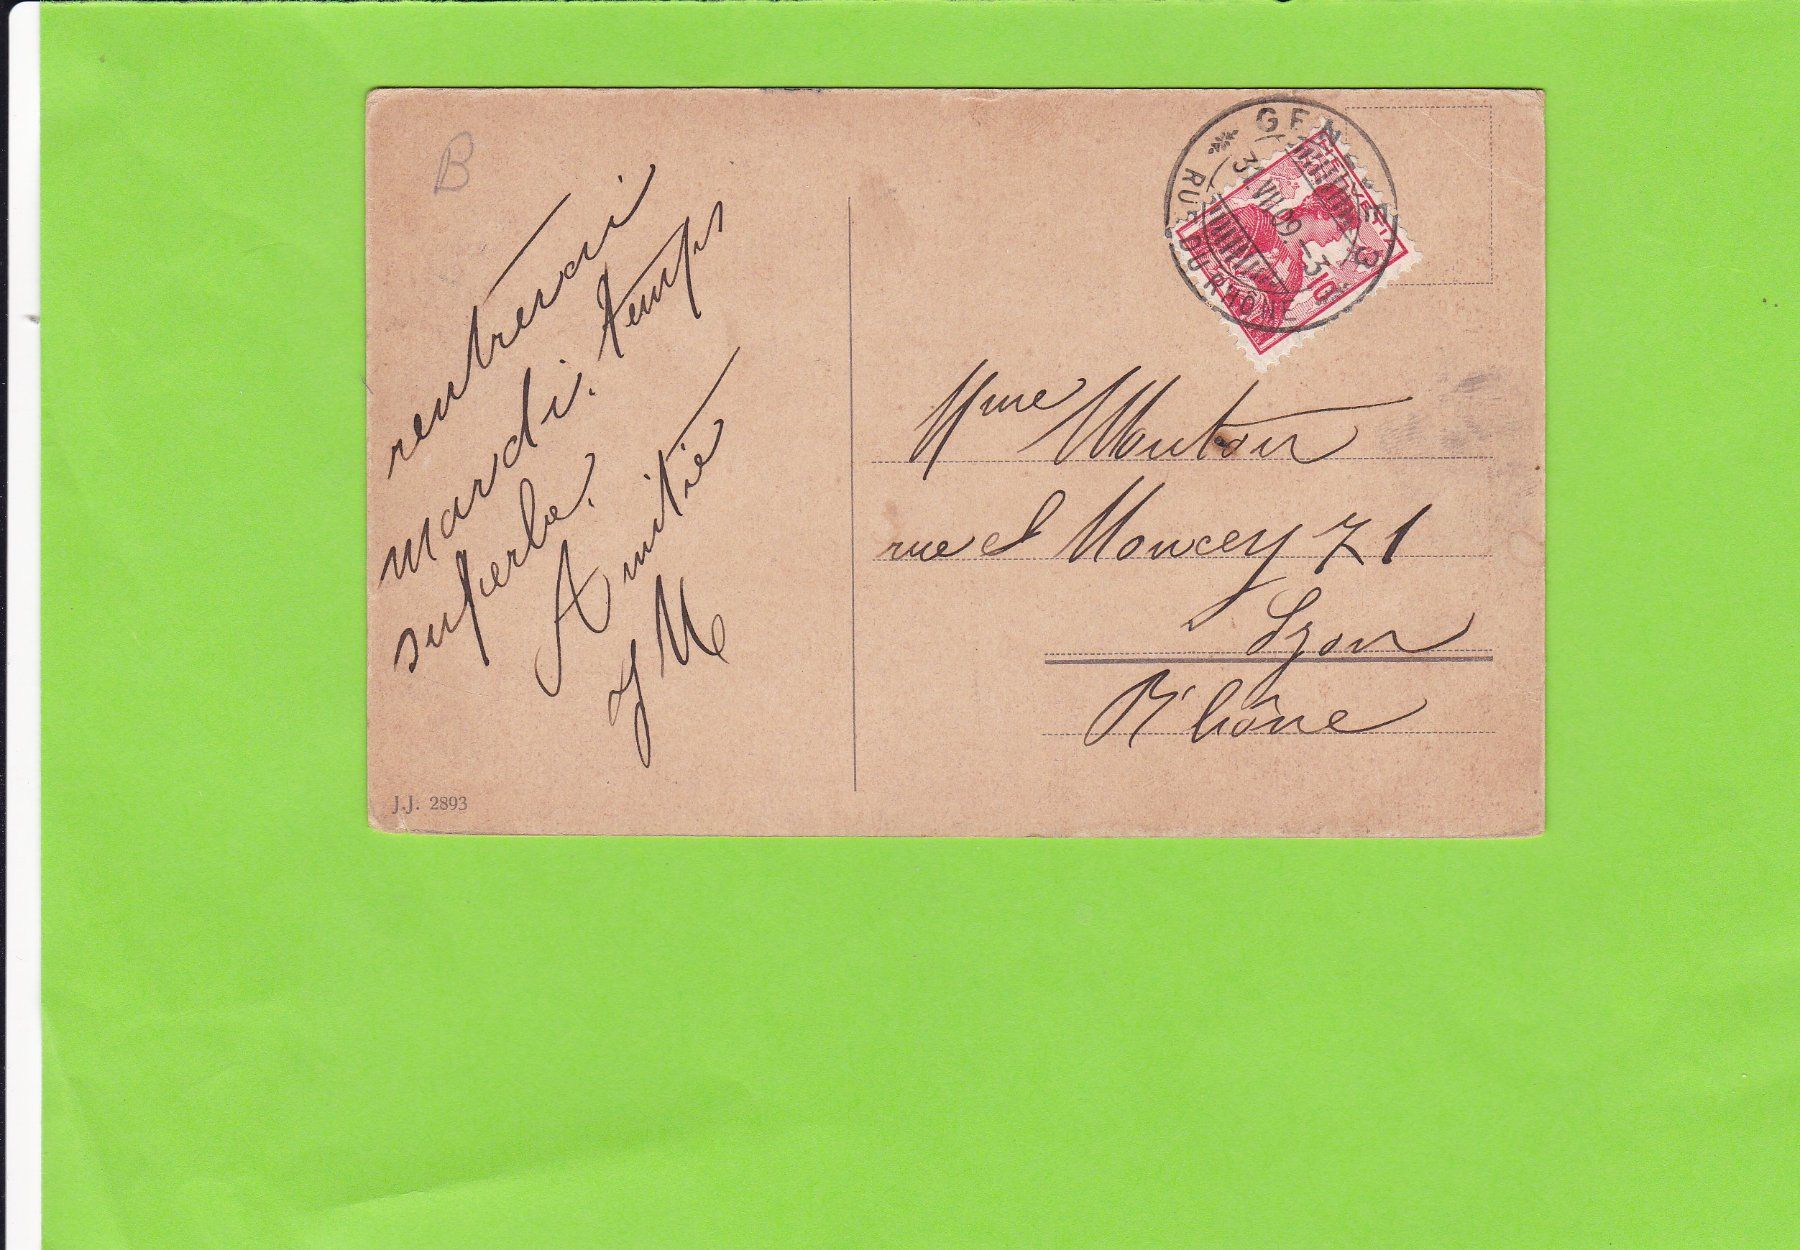 B
rentrerai
mardi. temps
superbe.
Amitié
J.J. 2893
GENÈVE
RUE DU RHÔNE
31 VII 09 – 3
HELVETIA
10
Mme Mouton
rue Moncey 71
Lyon
Rhône